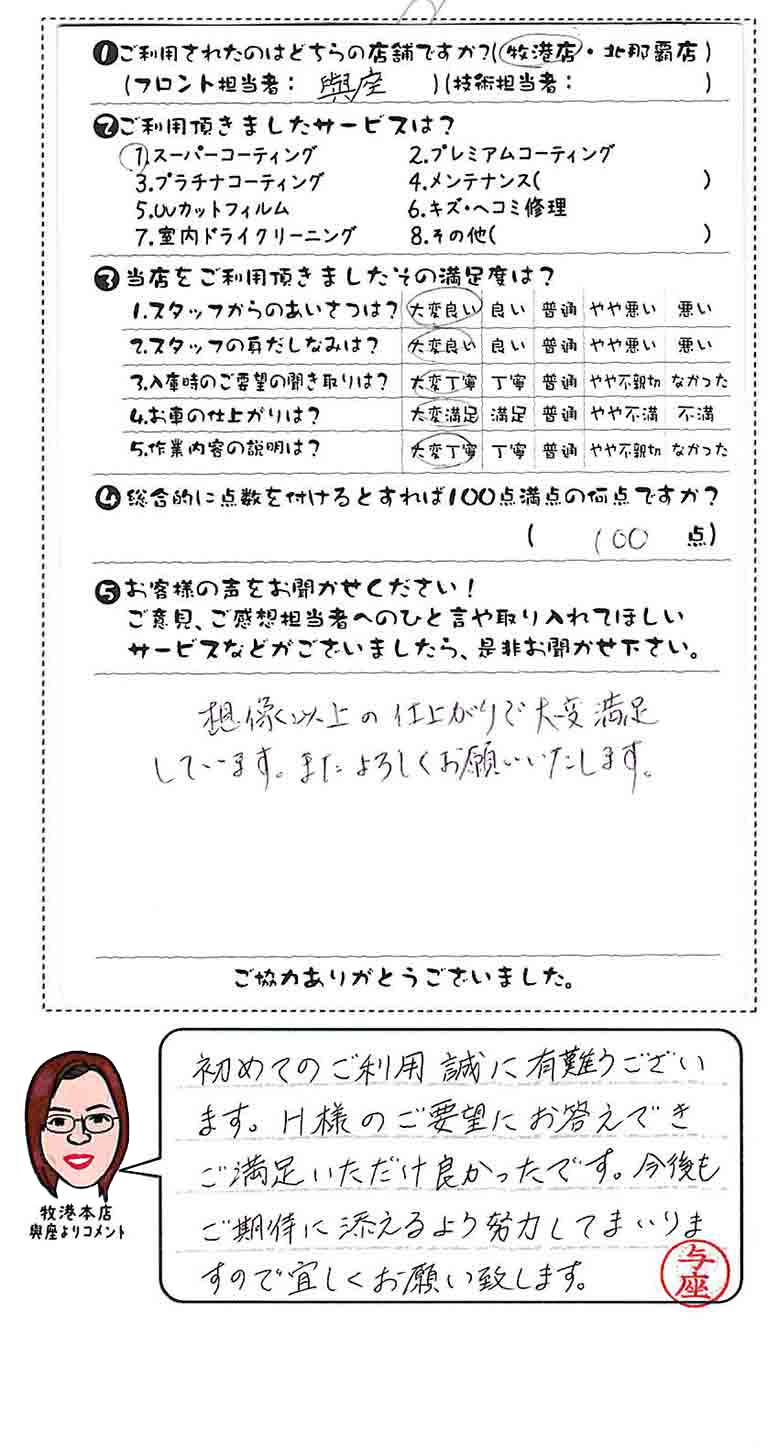 ❶ご利用されたのはどちらの店舗ですか?(牧港店・北那覇店)
(フロント担当者: 與座 )(技術担当者: )
❷ご利用頂きましたサービスは?
1.スーパーコーティング 2.プレミアムコーティング
3.プラチナコーティング 4.メンテナンス( )
5.UVカットフィルム 6.キズ・ヘコミ修理
7.室内ドライクリーニング 8.その他( )
❸当店をご利用頂きましたその満足度は?
1.スタッフからのあいさつは? 大変良い 良い 普通 やや悪い 悪い
2.スタッフの身だしなみは? 大変良い 良い 普通 やや悪い 悪い
3.入庫時のご要望の聞き取りは? 大変丁寧 丁寧 普通 やや不親切 なかった
4.お車の仕上がりは? 大変満足 満足 普通 やや不満 不満
5.作業内容の説明は? 大変丁寧 丁寧 普通 やや不親切 なかった
❹総合的に点数を付けるとすれば100点満点の何点ですか?
( 100 点)
❺お客様の声をお聞かせください!
ご意見、ご感想担当者へのひと言や取り入れてほしい
サービスなどがございましたら、是非お聞かせ下さい。
想像以上の仕上がりで大変満足
しています。またよろしくお願いいたします。
ご協力ありがとうございました。
初めてのご利用誠に有難うござい
ます。H様のご要望にお答えでき
ご満足いただけ良かったです。今後も
ご期待に添えるよう努力してまいりま
すので宜しくお願い致します。
与座
牧港本店
與座よりコメント